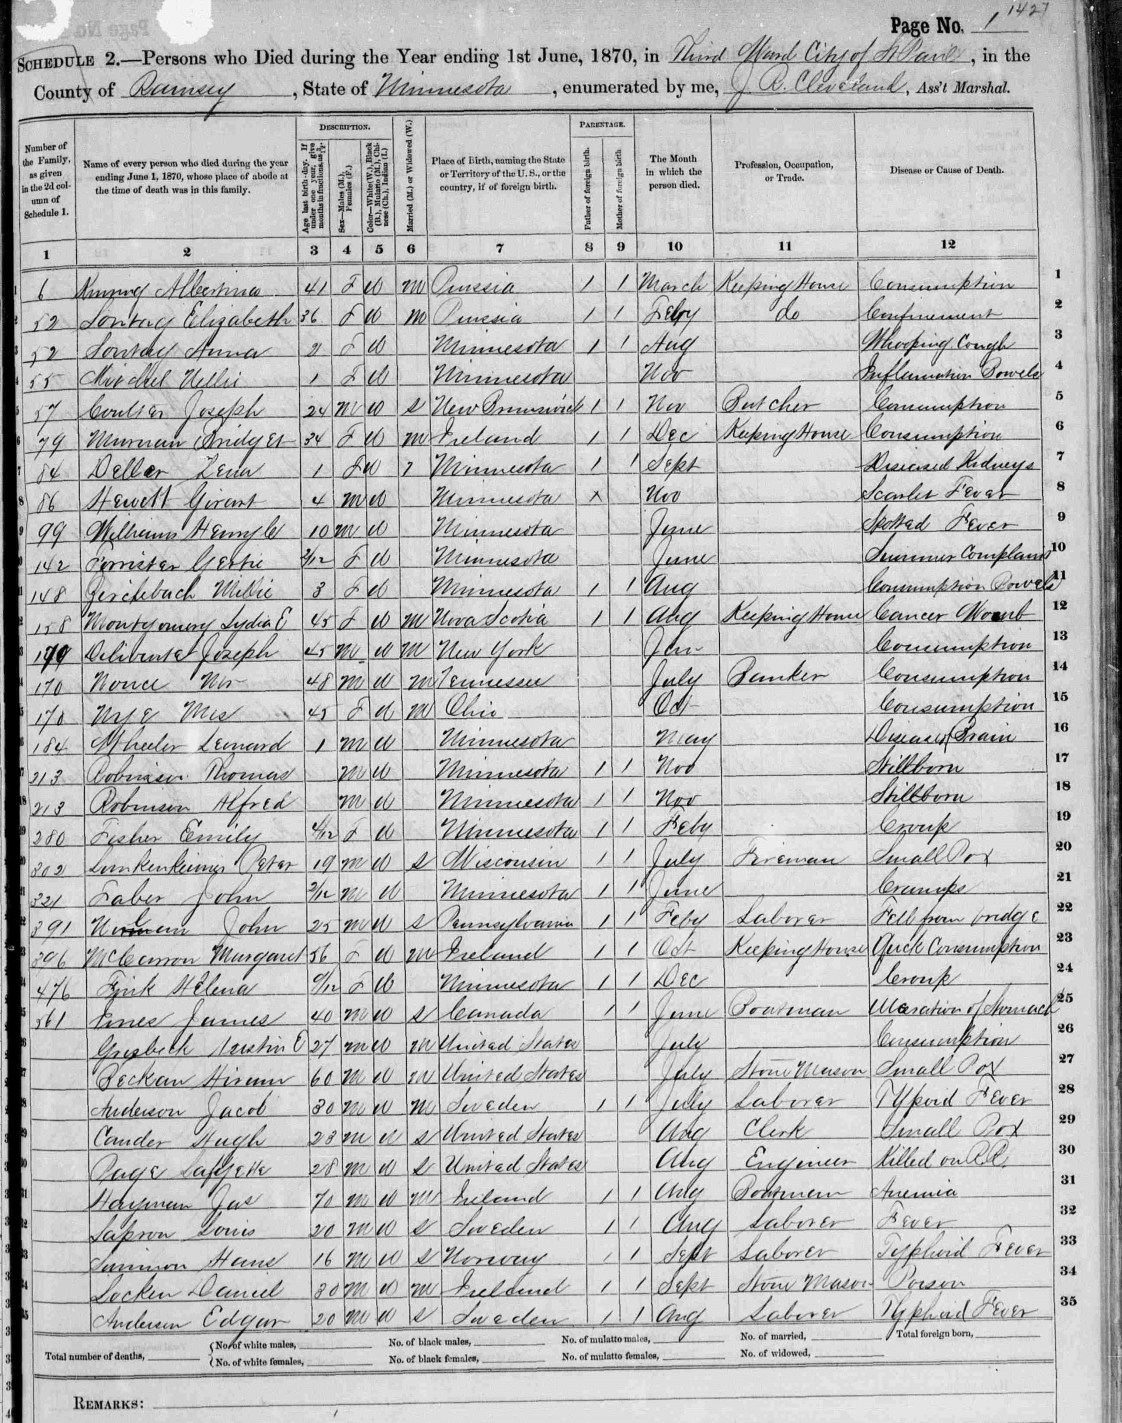 Page No. 1 1427
SCHEDULE 2.—Persons who Died during the Year ending 1st June, 1870, in Third Ward City of St Paul, in the
County of Ramsey, State of Minnesota, enumerated by me, J. R. Cleveland, Ass't Marshal.
Number of the Family, as given in the 2d column of Schedule 1.
Name of every person who died during the year ending June 1, 1870, whose place of abode at the time of death was in this family.
DESCRIPTION.
Age last birth-day. If under one year, give months in fractions, as 3/12
Sex—Males (M.), Females (F.)
Color—White (W.), Black (B.), Mulatto (M.), Chinese (Ch.), Indian (I.)
Married (M.) or Widowed (W.)
Place of Birth, naming the State or Territory of the U. S., or the country, if of foreign birth.
PARENTAGE.
Father of foreign birth.
Mother of foreign birth.
The Month in which the person died.
Profession, Occupation, or Trade.
Disease or Cause of Death.
1 2 3 4 5 6 7 8 9 10 11 12
6 Albertina 41 F W M Prussia 1 1 March Keeping House Consumption 1
52 Sontag Elizabeth 36 F W M Prussia 1 1 Feby do Confinement 2
52 Sontag Anna 2 F W Minnesota 1 1 Aug Whooping Cough 3
55 Mitchel Nellie 1 F W Minnesota Nov Inflamation Bowels 4
57 Coulter Joseph 24 M W S New Brunswick 1 1 Nov Butcher Consumption 5
79 Murnan Bridget 34 F W M Ireland 1 1 Dec Keeping House Consumption 6
84 Deller Lena 1 F W Minnesota 1 1 Sept Diseased Kidneys 7
86 Hewett Girart 4 M W Minnesota x Nov Scarlet Fever 8
99 Williams Henry C 10 M W Minnesota June Spotted Fever 9
142 Forrister Gertie 2/12 F W Minnesota June Summer Complaint 10
148 Millie 3 F W Minnesota 1 1 Aug Consumption Bowels 11
158 Montgomery Lydia E 45 F W M Nova Scotia 1 1 Aug Keeping House Cancer Womb 12
Joseph 45 M W M New York Jan Consumption 13
170 Mr 48 M W M Tennessee July Banker Consumption 14
170 Nye Mrs 45 F W M Ohio Oct Consumption 15
184 Wheeler Leonard 1 M W Minnesota May Diseased Brain 16
213 Robinson Thomas M W Minnesota 1 1 Nov Stillborn 17
213 Robinson Alfred M W Minnesota 1 1 Nov Stillborn 18
280 Fisher Emily 4/12 F W Minnesota 1 1 Feby Croup 19
302 Peter 19 M W S Wisconsin 1 1 July Fireman Small Pox 20
321 Faber John 2/12 M W Minnesota 1 1 June Cramps 21
391 John 25 M W S Pennsylvania 1 1 Feby Laborer Fell from bridge 22
396 McCarron Margaret 56 F W M Ireland 1 1 Oct Keeping House Quick Consumption 23
476 Fink Helena 9/12 F W Minnesota 1 1 Dec Croup 24
561 James 40 M W S Canada 1 1 June Boatman Ulseration of Stomach 25
Gresbeck E 27 M W M United States July Consumption 26
Beckan Hiram 60 M W M United States July Stone Mason Small Pox 27
Anderson Jacob 30 M W M Sweden 1 1 July Laborer Typoid Fever 28
Cander Hugh 23 M W S United States Aug Clerk Small Pox 29
Page Lafyette 28 M W S United States Aug Engineer Killed on R.R. 30
Hayman Jas 70 M W M Ireland 1 1 Aug Boatman Anemia 31
Sapron Louis 20 M W S Sweden 1 1 Aug Laborer Fever 32
Hans 16 M W S Norway 1 1 Sept Laborer Typhoid Fever 33
Locken Daniel 30 M W M Ireland 1 1 Sept Stone Mason Poison 34
Anderson Edgar 20 M W S Sweden 1 1 Aug Laborer Typhoid Fever 35
Total number of deaths, No. of white males, No. of black males, No. of mulatto males, No. of married, Total foreign born,
No. of white females, No. of black females, No. of mulatto females, No. of widowed,
REMARKS: